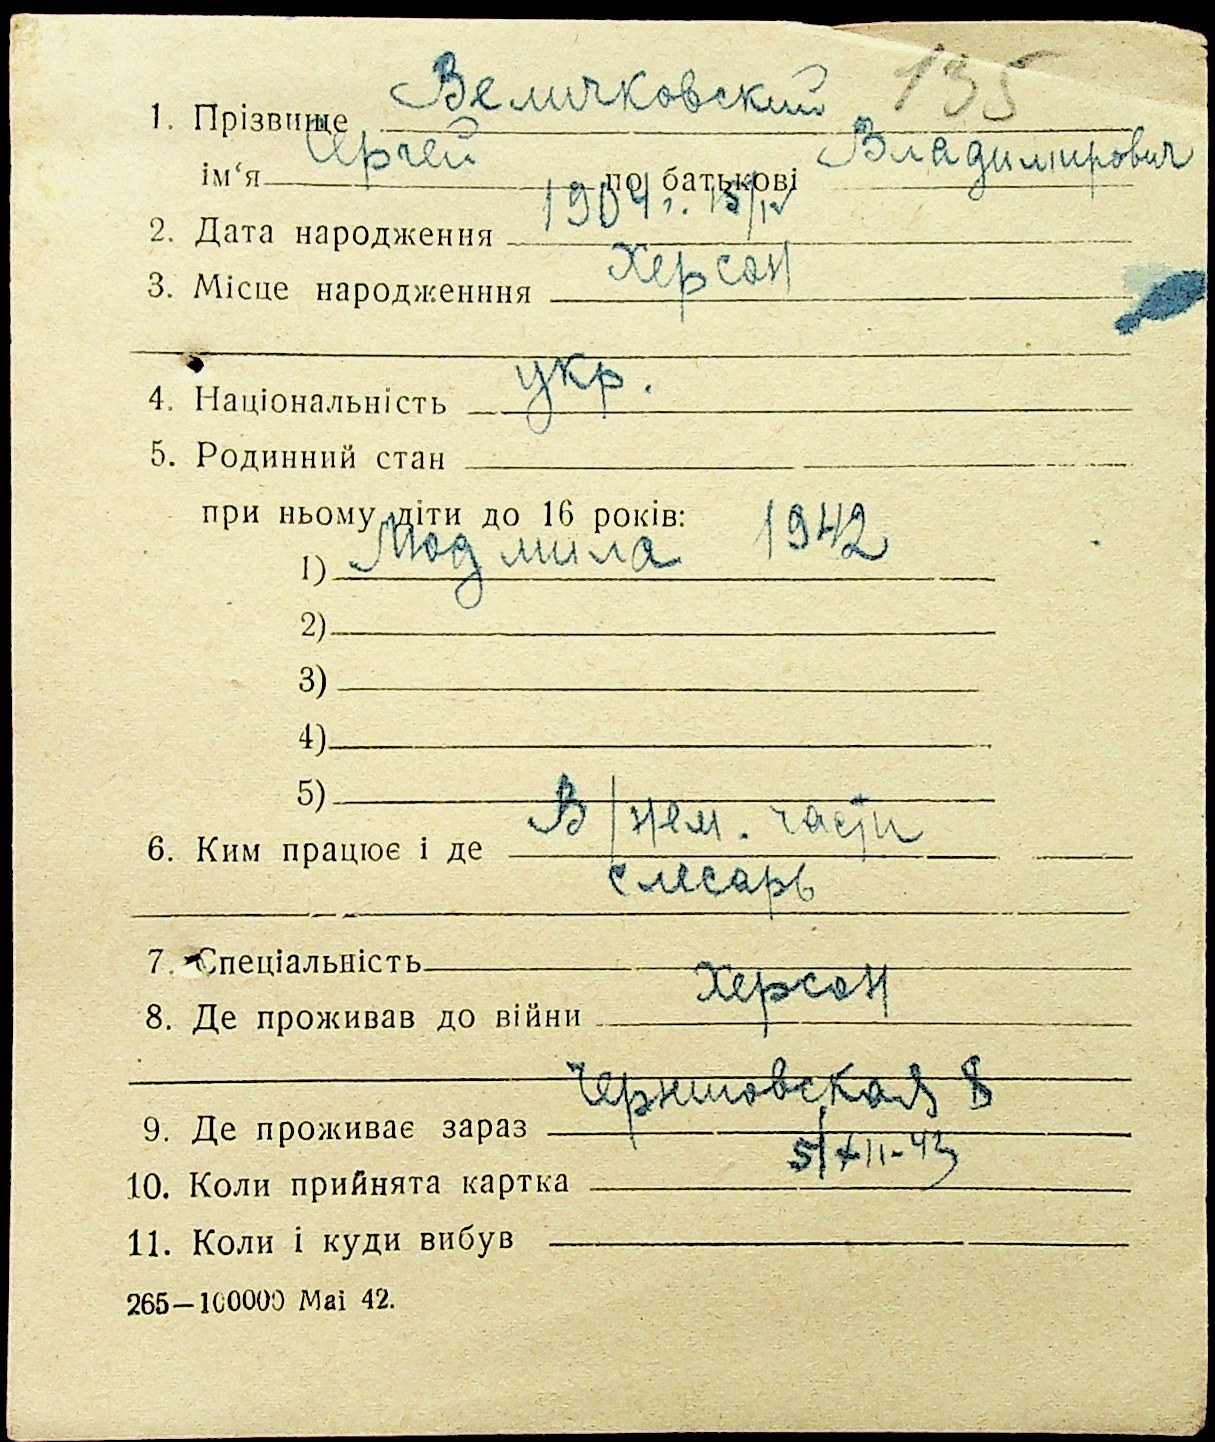 135
1. Прізвище Величковский
ім‘я Сергей по батькові Владимирович
2. Дата народження 1904 г. 15/IV
3. Місце народженння Херсон
4. Національність укр.
5. Родинний стан
при ньому діти до 16 років:
1) Людмила 1942
2)
3)
4)
5)
6. Ким працює і де В/нем. части
слесарь
7. Спеціальність
8. Де проживав до війни Херсон
9. Де проживає зараз 8
10. Коли прийнята картка 5/XII-43
11. Коли і куди вибув
265—100000 Mai 42.